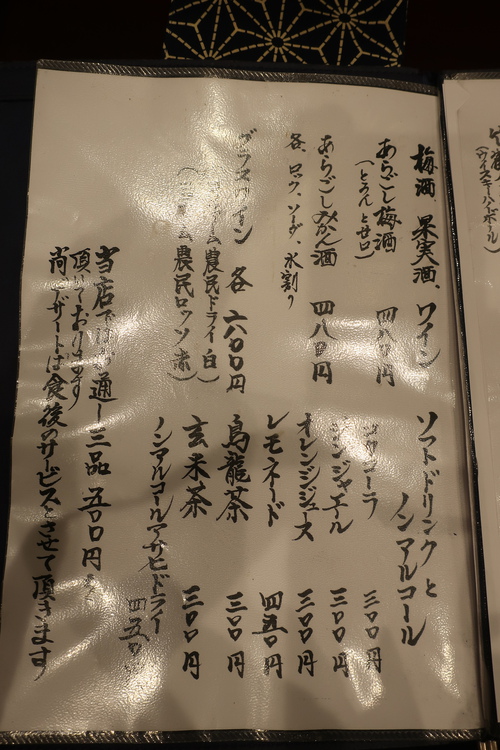 (ウイスキーハイボール)
梅酒 果実酒、ワイン
あらごし梅酒 四八〇円
(とろんとせ口)
あらごしみかん酒 四八〇円
各、ロック、ソーダ、水割り
グラスワイン 各 六〇〇円
農民ドライ 白)
農民ロッソ 赤)
ソフトドリンクと
ノンアルコール
コーラ 三〇〇円
ジンジャエール 三〇〇円
オレンジジュース 三〇〇円
レモネード 四五〇円
烏龍茶 三〇〇円
玄米茶 三〇〇円
ノンアルコールアサヒドライ
四五〇
当店では 通し三品 五〇〇円
頂いております
尚 デザートは食後のサービスとさせて頂きます